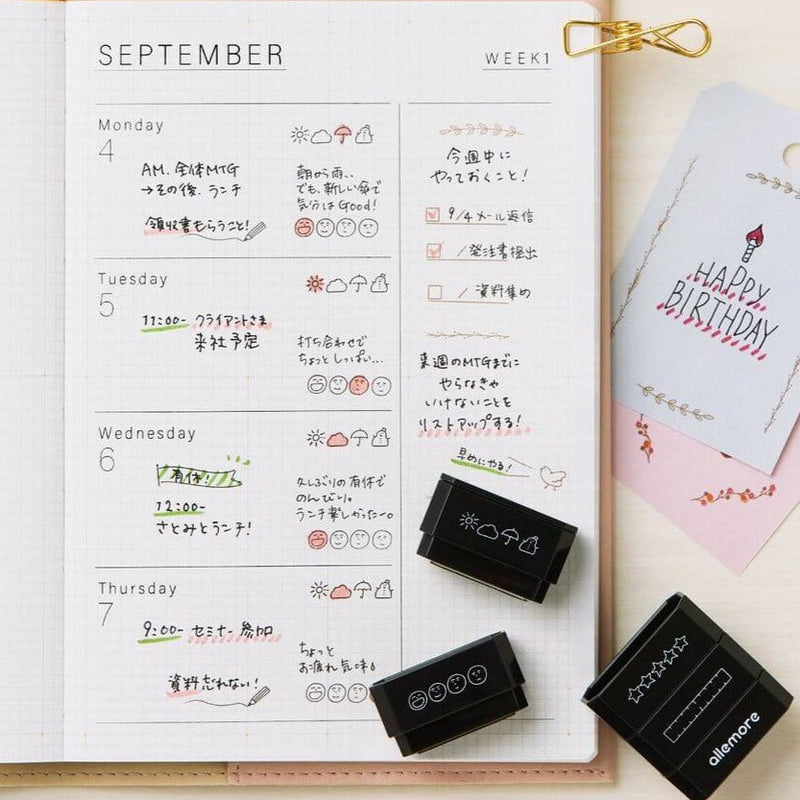 SEPTEMBER
WEEK1
Monday
4
AM. 全体MTG
→その後、ランチ
領収書もらうこと!
朝から雨、、
でも、新しい傘で
気分はGood!
Tuesday
5
11:00- クライアントさま
来社予定
打ち合わせで
ちょっとしっぱい...
Wednesday
6
有休!
12:00-
さとみとランチ!
久しぶりの有休で
のんびり。
ランチ楽しかったー。
Thursday
7
9:00- セミナー参加
資料忘れない!
ちょっと
お疲れ気味。
今週中に
やっておくこと!
9/4 メール返信
/発注書提出
/資料集め
来週のMTGまでに
やらなきゃ
いけないことを
リストアップする!
早めにやる!
HAPPY
BIRTHDAY
allemore